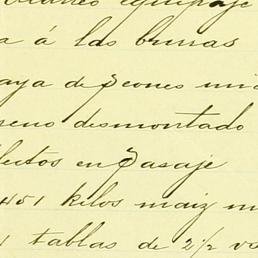 equipaje
a á las burras
aya de peones
reno desmontado
fectos en Pasaje
451 kilos maiz
tablas de 2 1/2 va